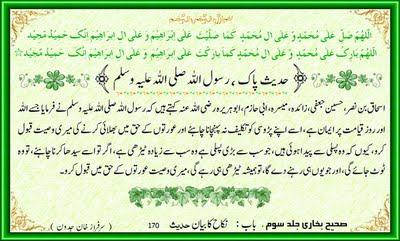 بسم اللہ الرحمن الرحیم
اَللّٰھُمَّ صَلِّ عَلٰی مُحَمَّدٍ وَّ عَلٰی اٰلِ مُحَمَّدٍ کَمَا صَلَّیْتَ عَلٰی اِبْرَاھِیْمَ وَ عَلٰی اٰلِ اِبْرَاھِیْمَ اِنَّکَ حَمِیْدٌ مَّجِیْدٌ
اَللّٰھُمَّ بَارِکْ عَلٰی مُحَمَّدٍ وَّ عَلٰی اٰلِ مُحَمَّدٍ کَمَا بَارَکْتَ عَلٰی اِبْرَاھِیْمَ وَ عَلٰی اٰلِ اِبْرَاھِیْمَ اِنَّکَ حَمِیْدٌ مَّجِیْدٌ
حدیث پاک ، رسول اللہ صلی اللہ علیہ وسلم
اسحاق بن نصر، حسین جعفی، زائدہ، میسرہ، ابی حازم، ابوہریرہ رضی اللہ عنہ کہتے ہیں کہ رسول اللہ صلی اللہ علیہ وسلم نے فرمایا جسے اللہ
اور روز قیامت پر ایمان ہے، اسے اپنے پڑوسی کو تکلیف نہ پہنچانا چاہئے اور عورتوں کے حق میں بھلائی کرنے کی میری وصیت قبول
کرو، کیوں کہ وہ پسلی سے پیدا ہوئی ہیں، جو سب سے پسلی ٹیڑھی ہے وہ سب سے زیادہ ٹیڑھی ہے، اگر تو اسے سیدھا کرنا چاہئے، تو وہ
ٹوٹ جائے گی، اور جو یوں ہی رہنے دے گا، تو ہمیشہ ٹیڑھی ہی رہے گی، میری وصیت عورتوں کے حق میں قبول کرو۔
صحیح بخاری جلد سوم . باب : نکاح کا بیان حدیث 170 ( سرفراز خان جدون )